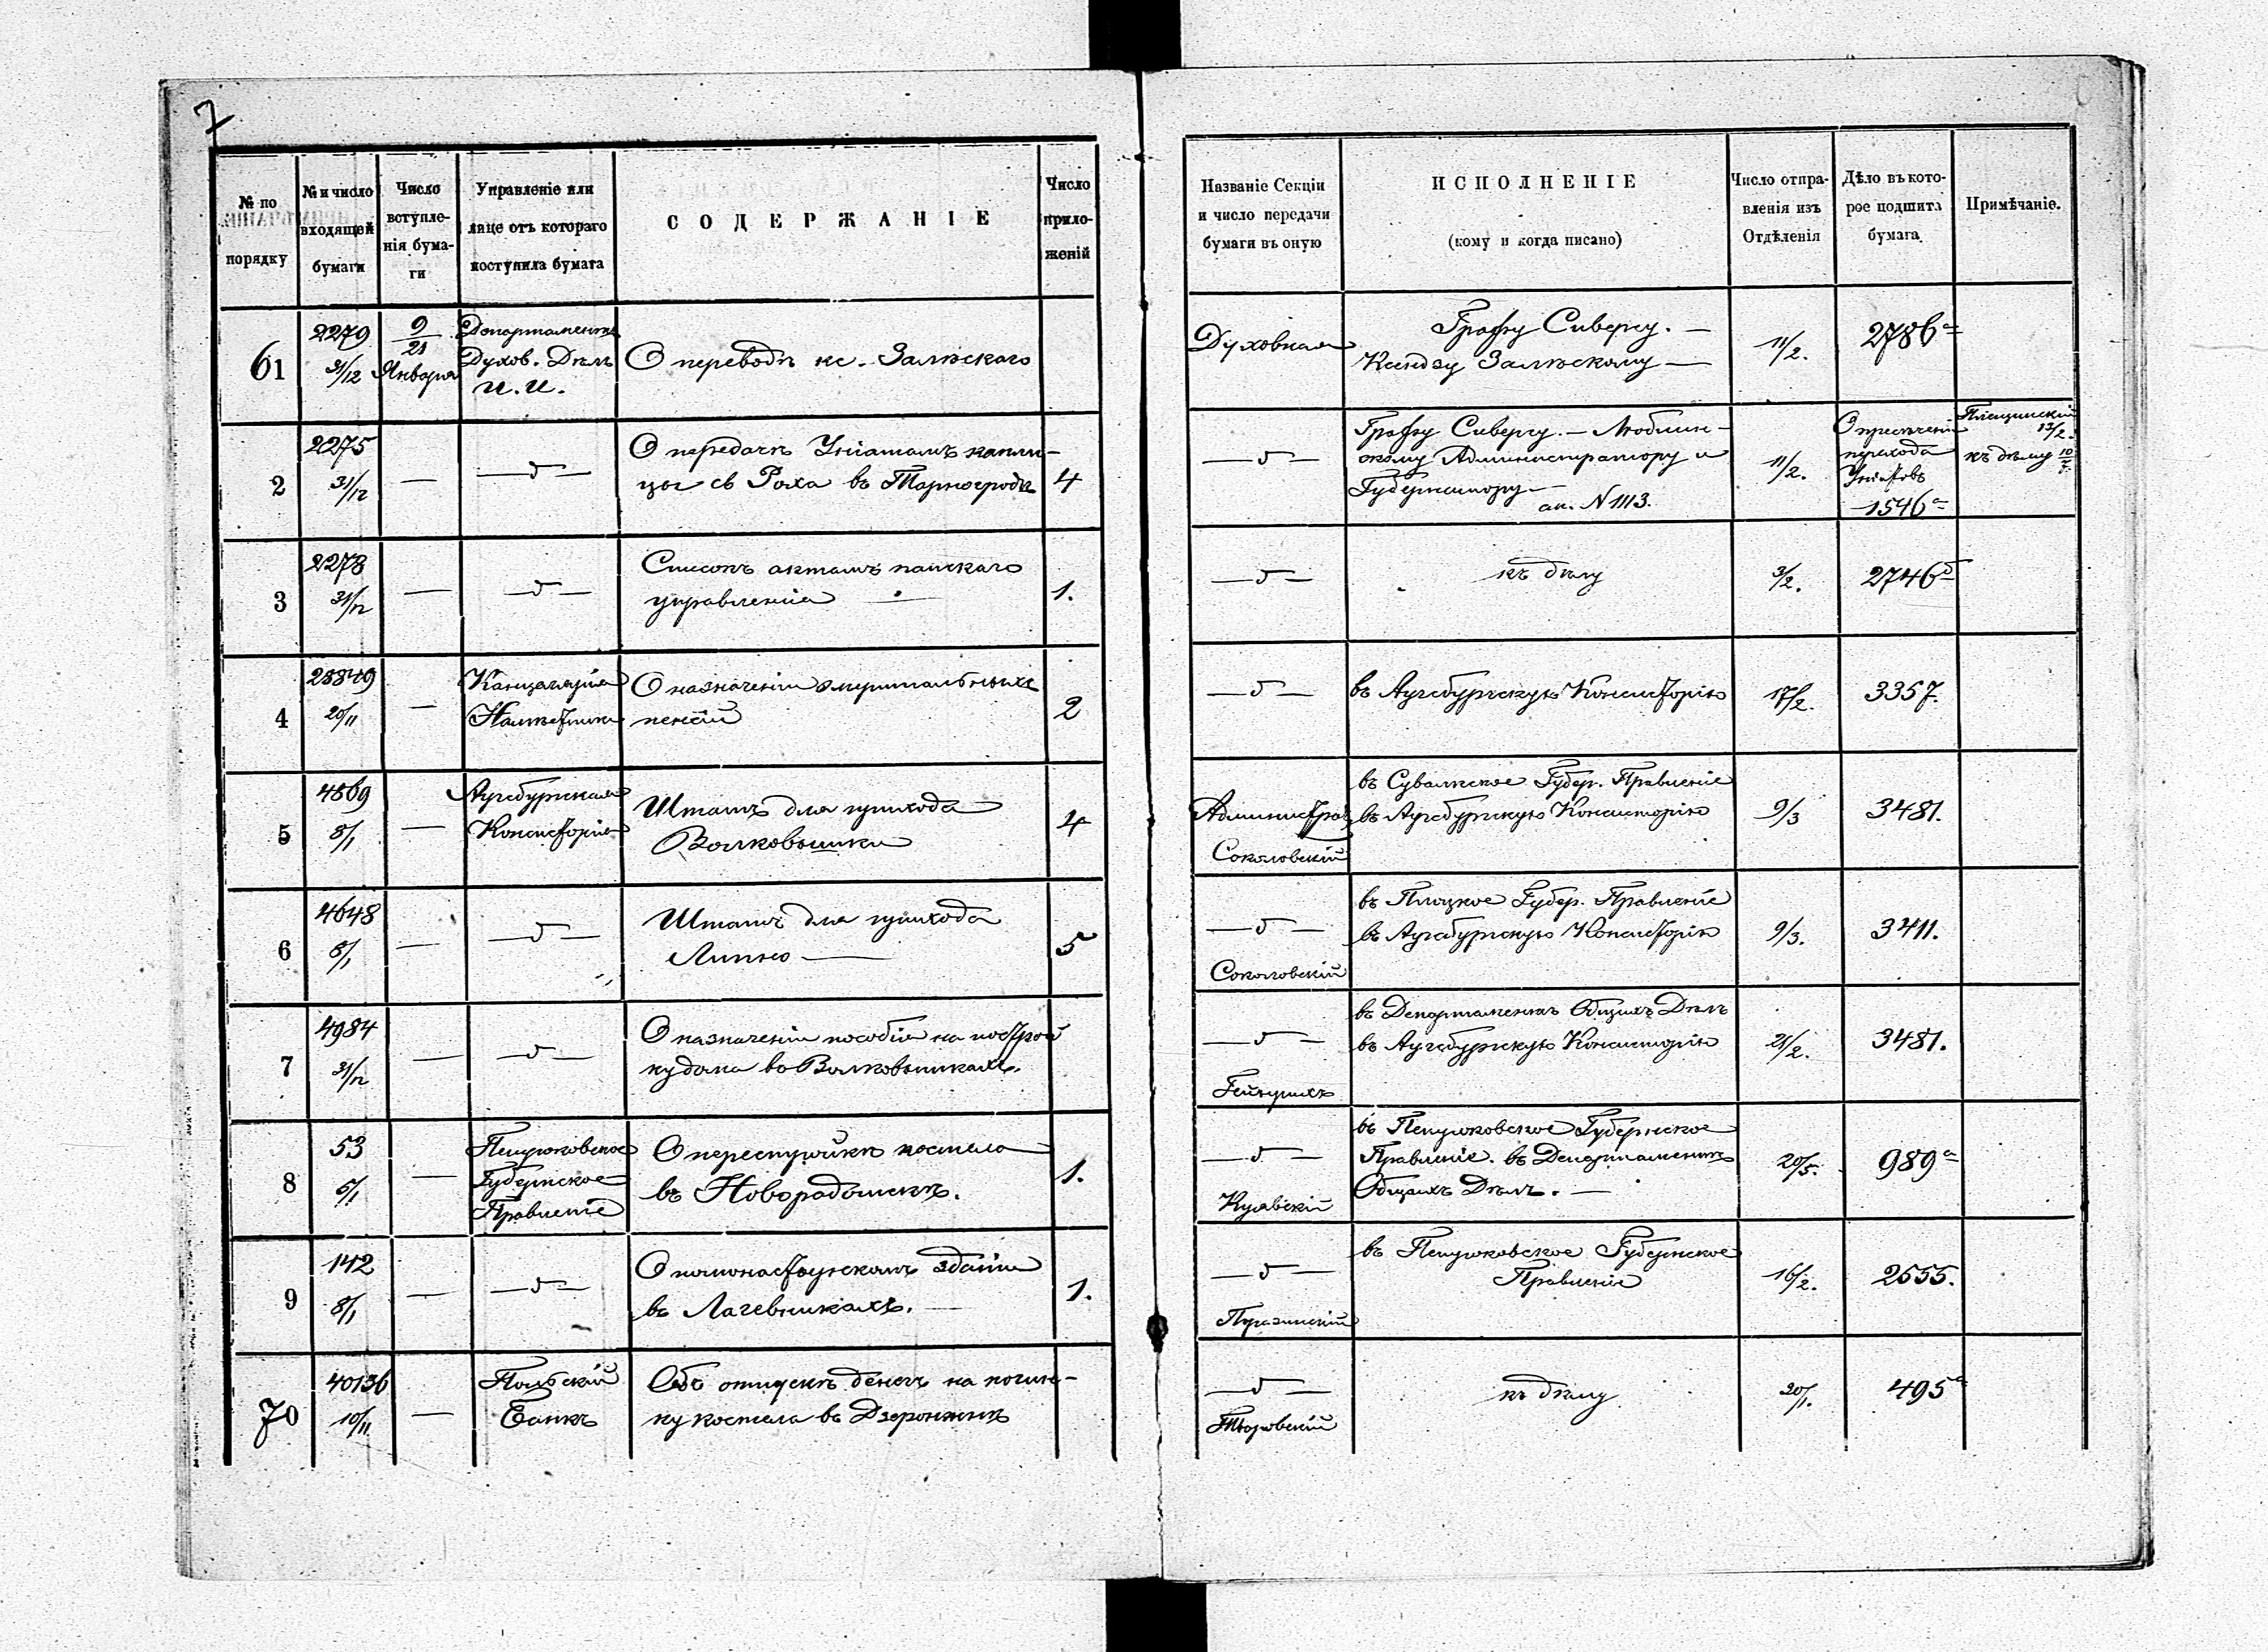 7
№ по порядку
№ и число входящей бумаги
Число вступленія бумаги
Управленіе или лице отъ котораго поступила бумага
СОДЕРЖАНІЕ
Число приложеній
Названіе Секціи и число передачи бумаги въ оную
ИСПОЛНЕНІЕ
(кому и когда писано)
Число отправленія изъ Отдѣленія
Дѣло въ которое подшита бумага
Примѣчаніе.
61
2279
31/12
9/21
Января
Департаментъ
Духов. Дѣлъ
И. И.
О переводѣ кс. Залѣскаго
Духовная
Графу Сиверсу. —
Ксендзу Залѣскому —
11/2.
2786а
2
2275
31/12
—
— " —
О передачѣ Уніатамъ капли-
цы св Роха въ Тарногродѣ
4
— " —
Графу Сиверсу. — Люблин-
скому Администратору и
Губернатору —
ан. N 1113.
11/2.
О пресѣченіи
перехода
Уніатовъ
1546а
13/2.
къ дѣлу
3
2278
31/12
—
— " —
Списокъ актамъ папскаго
управленія —
1.
— " —
къ дѣлу
3/2.
2746б
4
28849
20/11
—
Канцелярія
Намѣстника
О назначеніи эмеритальныхъ
пенсій
2
— " —
въ Аугсбургскую Консисторію
17/2.
3357.
5
4869
8/1
—
Аугсбургская
Консисторія
Штатъ для прихода
Волковышки
4
Администрат.
Соколовскій
въ Сувалкское Губер. Правленіе
въ Аугсбургскую Консисторію
9/3
3481.
6
4648
8/1
—
— " —
Штатъ для прихода
Липно —
5
— " —
Соколовскій
въ Плоцкое Губер. Правленіе
въ Аугсбургскую Консисторію
9/3.
3411.
7
4984
31/12
—
— " —
О назначеніи пособія на построй
ку дома въ Волковышкахъ.
— " —
въ Департаментъ Общихъ Дѣлъ
въ Аугсбургскую Консисторію
21/2.
3481.
8
53
5/1
—
Петроковское
Губернское
Правленіе
О перестройкѣ костела
въ Новорадомскѣ.
1.
— " —
Куявскій
въ Петроковское Губернское
Правленіе. въ Департаментъ
Общихъ Дѣлъ. —
20/5.
989а
9
142
8/1
—
— " —
О помонастырскомъ зданіи
въ Лагевникахъ. —
1.
— " —
въ Петроковское Губернское
Правленіе
16/2.
2555.
70
40136
10/11
—
Польскій
Банкъ
Объ отпускѣ денегъ на почин-
ку костела въ
— " —
къ дѣлу
20/1.
495а